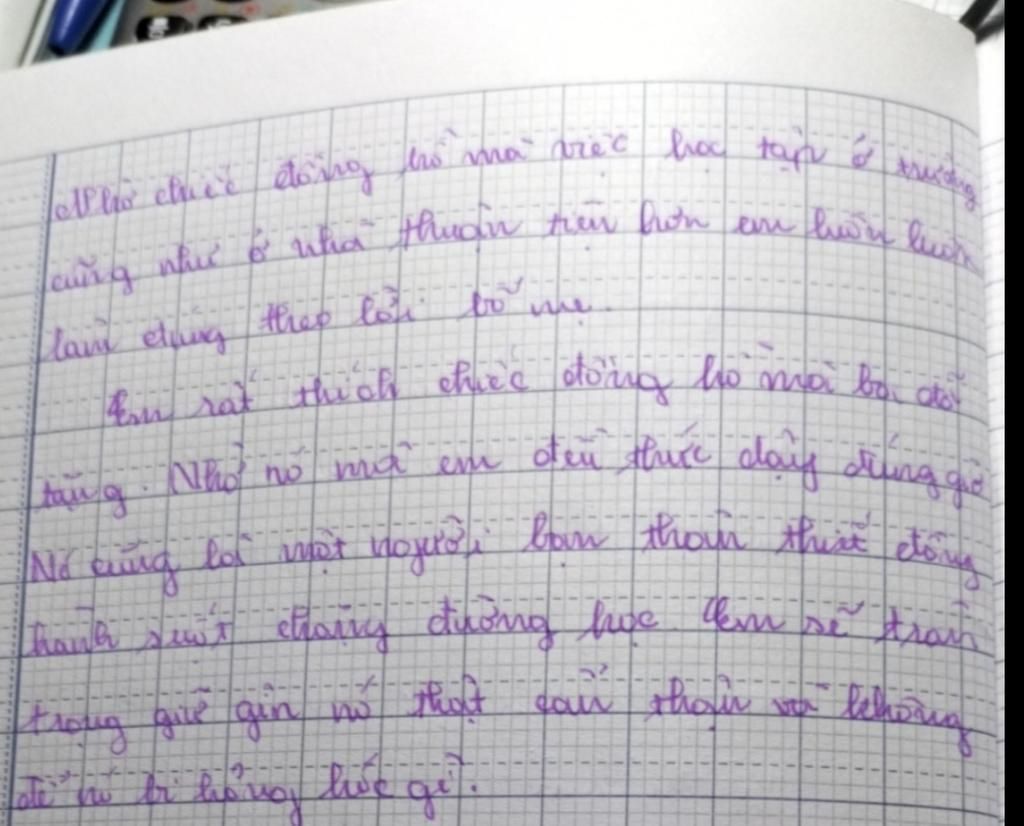 Nhờ chiếc đồng hồ mà việc học tập ở trường
cũng như ở nhà thuận tiện hơn em luôn luôn
làm đúng theo lời bố mẹ.
Em rất thích chiếc đồng hồ mà bà đã
tặng. Nhờ nó mà em đều thức dậy đúng giờ
Nó cũng là một người bạn thân thiết đồng
hành suốt chặng đường học. Em sẽ trân
trọng giữ gìn nó thật cẩn thận và không
để nó bị hỏng hóc gì.